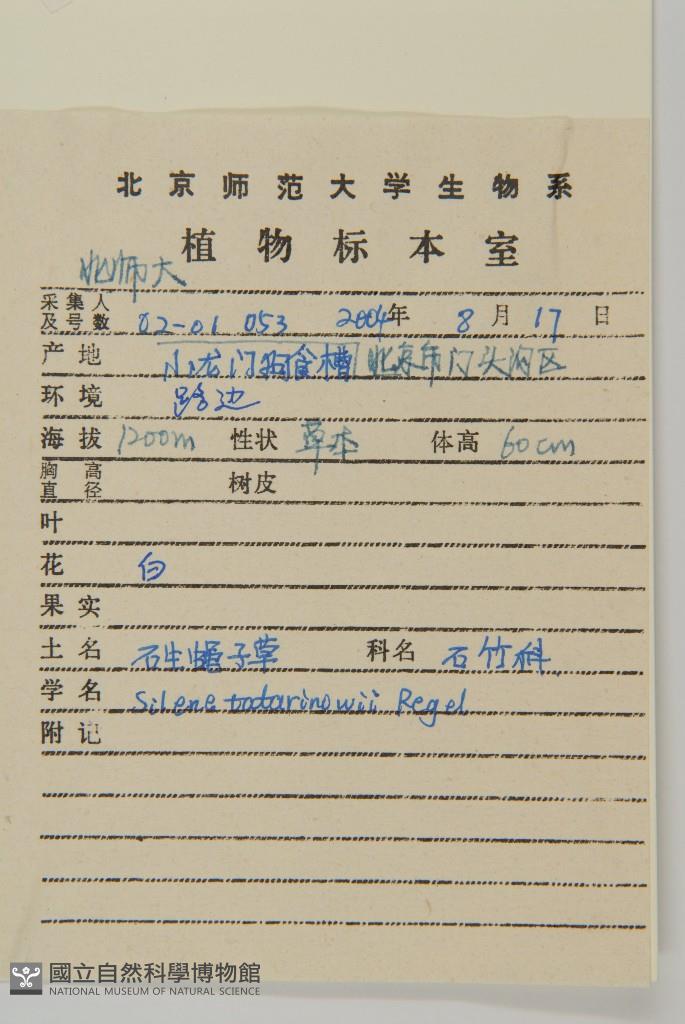 北京师范大学生物系
植物标本室
北师大
采集人及号数 02-01 053 2004年 8月17日
产地 小龙门狗食槽 北京市门头沟区
环境 路边
海拔 1200m 性状 草本 体高 60cm
胸高直径 树皮
叶
花 白
果实
土名 石生蝇子草 科名 石竹科
学名 Silene tatarinowii Regel
附记
國立自然科學博物館
NATIONAL MUSEUM OF NATURAL SCIENCE